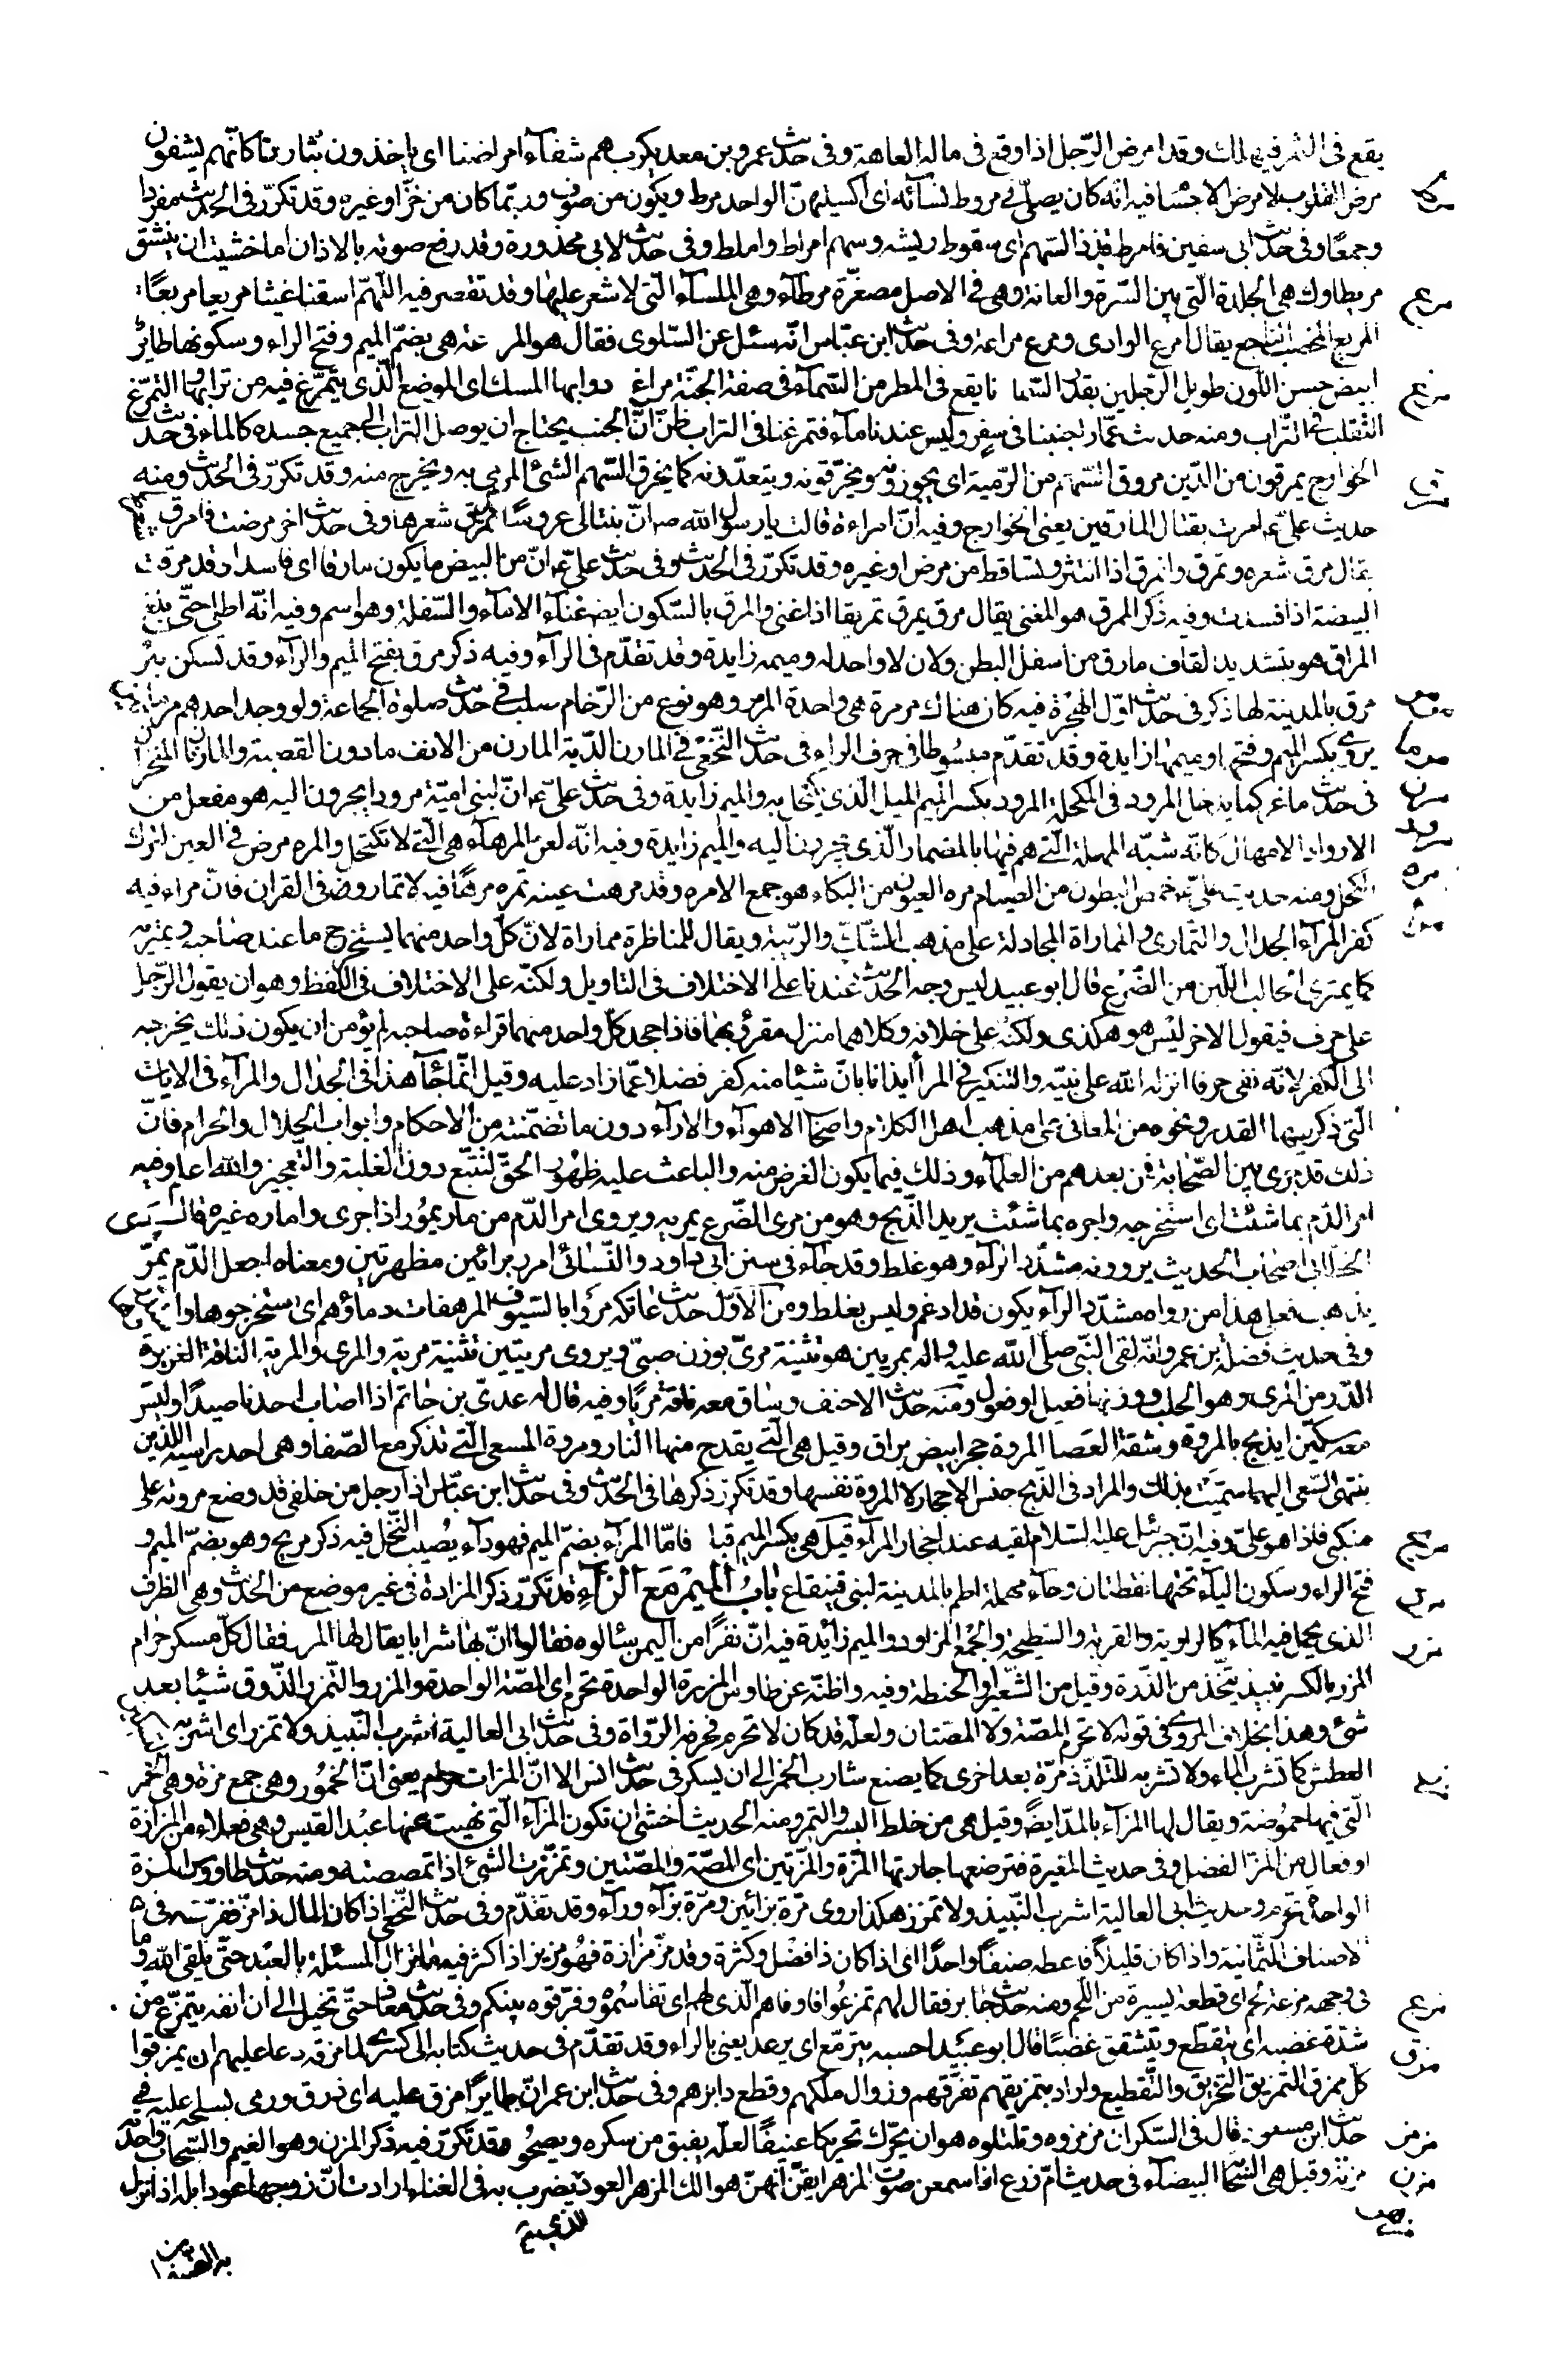 يقع فى الثمر فيهلك وقد امرض الرّجل اذا وقع فى ماله العاهة وفى حديث عمرو بن معديكرب هم شفآء امراضنا اى ياخذون بثارنا كانّهم يشفون
مرض القلوب لا مرض الاجسا فيه انّه كان يصلّى فى مروط نسآئه اى اكسيتهنّ الواحد مرط ويكون من صوف وربّما كان من خزّ او غيره وقد تكرّر فى الحديث مفردا
وجمعًا وفى حديث ابى سفين فامرط قذذ السّهم اى سقوط ريشه وسهم امراط واملط وفى حديث لابى محذورة وقد رفع صوته بالاذان اما خشيت ان ينشق
مريطاوك هى الجلدة الّتى بين السّرة والعانة وهى فى الاصل مصغّرة مرطآء وهى الملسآء الّتى لا شعر عليها وقد تقصر فيه اللّهمّ اسقنا غيثا مريعا مربعًا
المريع المخصب الناجع يقال امرع الوادى ومرع مراعة وفى حديث ابن عبّاس انّه سئل عن السّلوى فقال هو المرعة هى بضمّ الميم وفتح الراء وسكونها طاير
ابيض حسن اللّون طويل الرّجلين بقدر السّمانا يقع فى المطر من السّمآء فى صفة الجنّة مراغ دوابها المسك اى الموضع الّذى يتمرّغ فيه من ترابها والتمرّغ
التّقلب فى التّراب ومنه حديث عمّار اجنبنا فى سفر وليس عندنا مآء فتمرّغنا فى التراب ظنّ انّ الجنب يحتاج ان يوصل التراب الى جميع جسده كالماء فى حديث
الخوارج يمرقون من الدّين مروق السّهم من الرّمية اى يجوزونه ويخرقونه ويتعدّونه كما يخرق السّهم الشئ المرمى به ويخرج منه وقد تكرّر فى الحديث ومنه
حديث علىّ ع امرت بقتال المارقين يعنى الخوارج وفيه انّ امراءة قالت يا رسول الله ص انّ بنتا لى عروسًا تمرّق شعرها وفى حديث اخر مرضت فامرق
يقال مرق شعره وتمرق وانمرق اذا انتثر وتساقط من مرض او غيره وقد تكرّر فى الحديث وفى حديث علىّ ع انّ من البيض ما يكون مارقا اى فاسدا وقد مرقت
البيضة اذا فسدت وفيه ذكر الممرق هو المغنى يقال مرق يمرق تمريقا اذا غنى والمرق بالسّكون ايض غنآء الامآء والسّفلة وهو اسم وفيه انّه اطلى حتّى بلغ
المراق هو بتشديد القاف مارق من اسفل البطن ولان لا واحد له وميمه زايدة وقد تقدّم فى الرآء وفيه ذكر مرق بفتح الميم والرآء وقد تسكن بئر
مرق بالمدينة لها ذكر فى حديث اوّل الهجرة فيه كان هناك مرمرة هى واحدة المرمر وهو نوع من الرّخام صلب فى حديث صلوة الجماعة ولو وجد احدهم مرماتين
يروى بكسر الميم وفتحها وميمها زايدة وقد تقدّم مبسوطا فى حرف الراء فى حديث النّخعى فى المارن الدّية المارن من الانف مادون القصبة والمارنان المنخران
فى حديث ماعز كما يدخل المرود فى المكحلة المرود بكسر الميم الميل الّذى يكتحل به والميم زايدة وفى حديث علىّ ع انّ لبنى اميّة مرودا يجرون اليه هو مفعل من
الارواد الامهال كانّه شبّه المهلة الّتى هم فيها بالمضمار الّذى يجرون اليه والميم زايدة وفيه انّه لعن المرهآء هى الّتى لا تكتحل والمره مرض فى العين لترك
الكحل ومنه حديث علىّ ع خمص البطون من الصيام مره العيون من البكاء هو جمع الامره وقد مرهت عينه تمره مرهًا فيه لا تماروا فى القران فانّ مراء فيه
كفر المرآء الجدال والتمارى والمماراة المجادلة على مذهب الشّك والرّيبة ويقال للمناظرة مماراة لانّ كلّ واحد منهما يستخرج ما عند صاحبه ويمتريه
كما يمترى الحالب اللّبن من الضّرع قال ابو عبيد ليس وجه الحديث عندنا على الاختلاف فى التاويل ولكنّه على الاختلاف فى اللّفظ وهو ان يقول الرّجل
على حرف فيقول الاخر ليس هو هكذى ولكنّه على خلافه وكلاهما منزل مقروّ بهما فاذا جحد كلّ واحد منهما قراءة صاحبه لم يؤمن ان يكون ذلك يخرجه
الى الكفر لانّه نفى حرفا انزله الله على نبيّه والتنكير فى المرأ ايذانا بانّ شيئا منه كفر فضلا عمّا زاد عليه وقيل انّما جآء هذا فى الجدال والمرآء فى الايات
الّتى ذكر فيها القدر ونحوه من المعانى على مذهب اهل الكلام واصحاب الاهوآء والارآء دون ما تضمّنته من الاحكام وابواب الحلال والحرام فانّ
ذلك قد جرى بين الصّحابة فمن بعدهم من العلمآء وذلك فيما يكون الغرض منه والباعث عليه ظهور الحقّ لنتبّع دون الغلبة والتّعجيز والله اعلم وفيه
امر الدّم بما شئت اى استخرجه واجره بما شئت يريد الذّبح وهو من مرى الضّرع يمريه ويروى امر الدّم من مار يمور اذا جرى واماره غيره قال
الخطّابى اصحاب الحديث يروونه مشدّد الرآء وهو غلط وقد جآء فى سنن ابى داود والنّسائى امرر برائين مظهرتين ومعناه اجعل الدّم يمرّ
يذهب فعلى هذا من رواه مشدّد الرآء يكون قد ادغم وليس بغلط ومن الاوّل حديث عاتكة مروا بالسّيوف المرهفات دماؤهم اى استخرجوها
وفى حديث فضلة بن عمرو انّه لقى النّبى صلّى الله عليه واله بمريين هو تثنية مرىّ بوزن صبىّ ويروى مريتين تثنية مرية والمرى والمرية النّاقة الغزيرة
الدّر من المرى وهو الحلب ووزنها فعيل او فعول ومنه حديث الاحنف وساق معه ناقة مريًا وفيه قال له عدىّ بن حاتم اذا اصاب احدنا صيدًا وليس
معه سكّين ايذبح بالمروة وشقة العصا المروة حجر ابيض براق وقيل هى الّتى يقدح منها النار ومروة المسعى الّتى تذكر مع الصّفا وهى احد راسيه اللّذين
ينتهى السّعى اليهما سمّيت بذلك والمراد فى الذّبح جنس الاحجار لا المروة نفسها وقد تكرّر ذكرها فى الحديث وفى حديث ابن عبّاس اذا رجل من خلفى قد وضع مروته على
منكبى فاذا هو علىّ وفيه انّ جبرئيل عليه السّلام لقيه عند احجار المرآء قيل هى بكسر الميم قبا فامّا المرآء بضمّ الميم فهو دآء يصيب النّخل فيه ذكر مريح وهو بضمّ الميم و
فتح الراء وسكون اليآء تحتها نقطتان وحآء مهملة اطم بالمدينة لبنى قينقاع باب الميم مع الزآء قد تكرّر ذكر المزادة فى غير موضع من الحديث وهى الظرف
الذى يحمل فيه المآء كالراوية والقربة والسّطيحة والجمع المزاود والميم زآئدة فيه انّ نفرًا من اليمن سئالوه فقالوا انّ بها شرابا يقال لها المزر فقال كلّ مسكر حرام
المزر بالكسر نبيذ يتّخذ من الذّرة وقيل من الشّعير او الحنطة وفيه واظنّه عن طاوس المزرة الواحدة تحرم اى المصّة الواحدة والمزر والتّمزر الذّوق شيئا بعد
شئ وهذا بخلاف المروى فى قوله لا تحرم المصّة ولا المصّتان ولعلّه قد كان لا تحرم فحرفه الرّواة وفى حديث ابى العالية اشرب النّبيذ ولا تمزر اى اشربه
العطش كما تشرب الماء ولا تشربه للتّلذّذ مرّة بعد اخرى كما يصنع شارب الخمر الى ان يسكر فى حديث انس الا انّ المزات حرام يعنى انّ الخمور وهى جمع مزة وهى الخمر
الّتى فيها حموضة ويقال لها المزآء بالمدّ ايضًا وقيل هى من خلط البسر والتمر ومنه الحديث اخشى ان تكون المزآء الّتى نهيت عنها عبد القيس وهى فعلاء من المزازة
او فعال من المزّ الفضل وفى حديث المغيرة فترضعها جارتها المزّة والمزّتين اى المصّة والمصّتين وتمزّزت الشئ اذا تمصصته ومنه حديث طاووس المزة
الواحدة تحرم وحديث ابى العالية اشرب النّبيذ ولا تمزز هكذا روى مرّة بزائين ومرّة بزآء ورآء وقد تقدّم وفى حديث النّخعى اذا كان المال ذا مزّ ففرّقه فى
الاصناف الثّمانية واذا كان قليلًا فاعطه صنفًا واحدًا اى اذا كان ذا فضل وكثرة وقد مزّ مزازة فهو مزيز اذا كثر فيه ما تزال المسئلة بالعبد حتّى يلقى الله وما
فى وجهه مزعة لحم اى قطعة يسيرة من اللّحم ومنه حديث جابر فقال لهم تمزعوا فاوفاهم الّذى لهم اى تقاسموه وفرّقوه بينكم وفى حديث معاذ حتّى تخيل الى ان انفه يتمزّع من
شدّة غضبه اى يتقطّع ويتشقق غضبًا قال ابو عبيد احسبه يترمّع اى يرعد يعنى بالراء وقد تقدّم فى حديث كتابه الى كسرى لما مزقه دعا عليهم ان يمزقوا
كلّ ممزق التمزيق التّخريق والتّقطيع واراد بتمزيقهم تفرّقهم وزوال ملكهم وقطع دابرهم وفى حديث ابن عمر انّ طايرًا مزق عليه اى ذرق ورمى بسلحه عليه فى
حديث ابن مسعود قال فى السّكران مزمزوه وتلتلوه هو ان يحرّك تحريكا عنيفًا لعلّه يفيق من سكره ويصحو وقد تكرّر فيه ذكر المزن وهو الغيم والسّحاب واحدته
مزنة وقيل هى السّحابة البيضآء فى حديث امّ زرع اذا سمعن صوت المزهر ايقنّ انّهنّ هوالك المزهر العود الذى يضرب به فى الغناء ارادت انّ زوجها عود ابله اذا نزل
به الضيفان